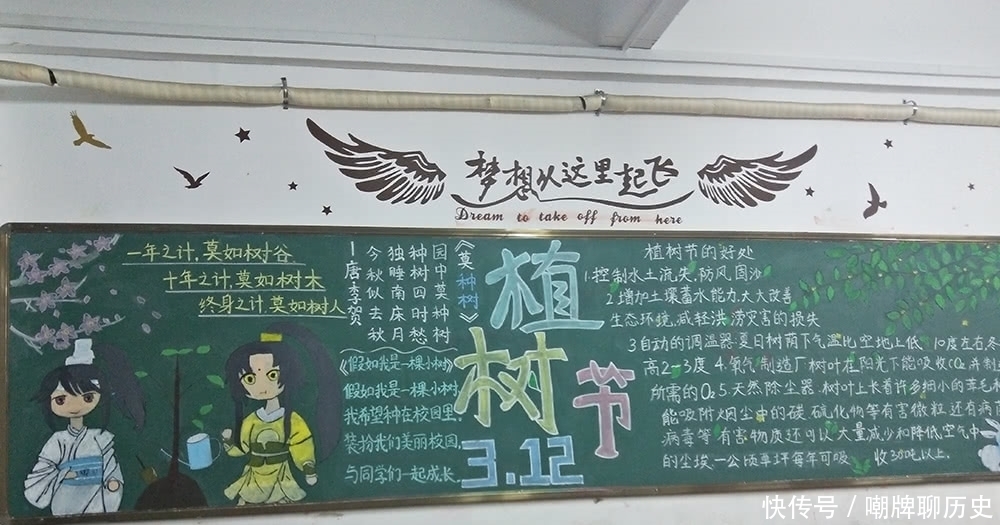 梦想从这里起飞
Dream to take off from here
一年之计,莫如树谷
十年之计,莫如树木
终身之计,莫如树人
《莫种树》
园中莫种树
种树四时愁
独睡南床月
今秋似去秋
—唐·李贺
《假如我是一棵小树》
假如我是一棵小树,
我希望种在校园里.
装扮我们美丽校园,
与同学们一起成长.
植树节
3.12
植树节的好处
1.控制水土流失,防风,固沙
2.增加土壤蓄水能力,大大改善
生态环境,减轻洪涝灾害的损失
3自动的调温器:夏日树荫下气温比空地上低10度左右冬
高2—3度 4.氧气制造厂树叶在阳光下能吸收CO₂并制
所需的O₂ 5.天然除尘器.树叶上长着许多细小的茸毛
能吸附烟尘中的碳,硫化物等有害微粒还有病
病毒等有害物质还可以大量减少和降低空气中
的尘埃一公顷草坪每年可吸 收30吨以上.
快传号 / 嘲牌聊历史